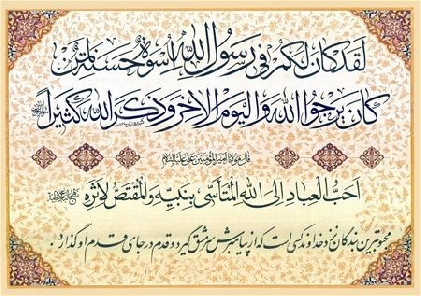 لَقَدْ كَانَ لَكُمْ فِي رَسُولِ اللَّهِ أُسْوَةٌ حَسَنَةٌ لِمَنْ
كَانَ يَرْجُوا اللَّهَ وَالْيَوْمَ الْآخِرَ وَذَكَرَ اللَّهَ كَثِيرًا
قال مولانا امیرالمؤمنین علی علیه السلام
اَحَبُّ الْعِبادِ اِلَی اللهِ الْمُتَأَسّی بِنَبِیِّهِ وَالْمُقْتَصُّ لِاَثَرِهِ
محبوبترین بندگان نزد خداوند کسی است که از پیامبرش سرمشق گیرد و قدم در جای قدم او گذارد.